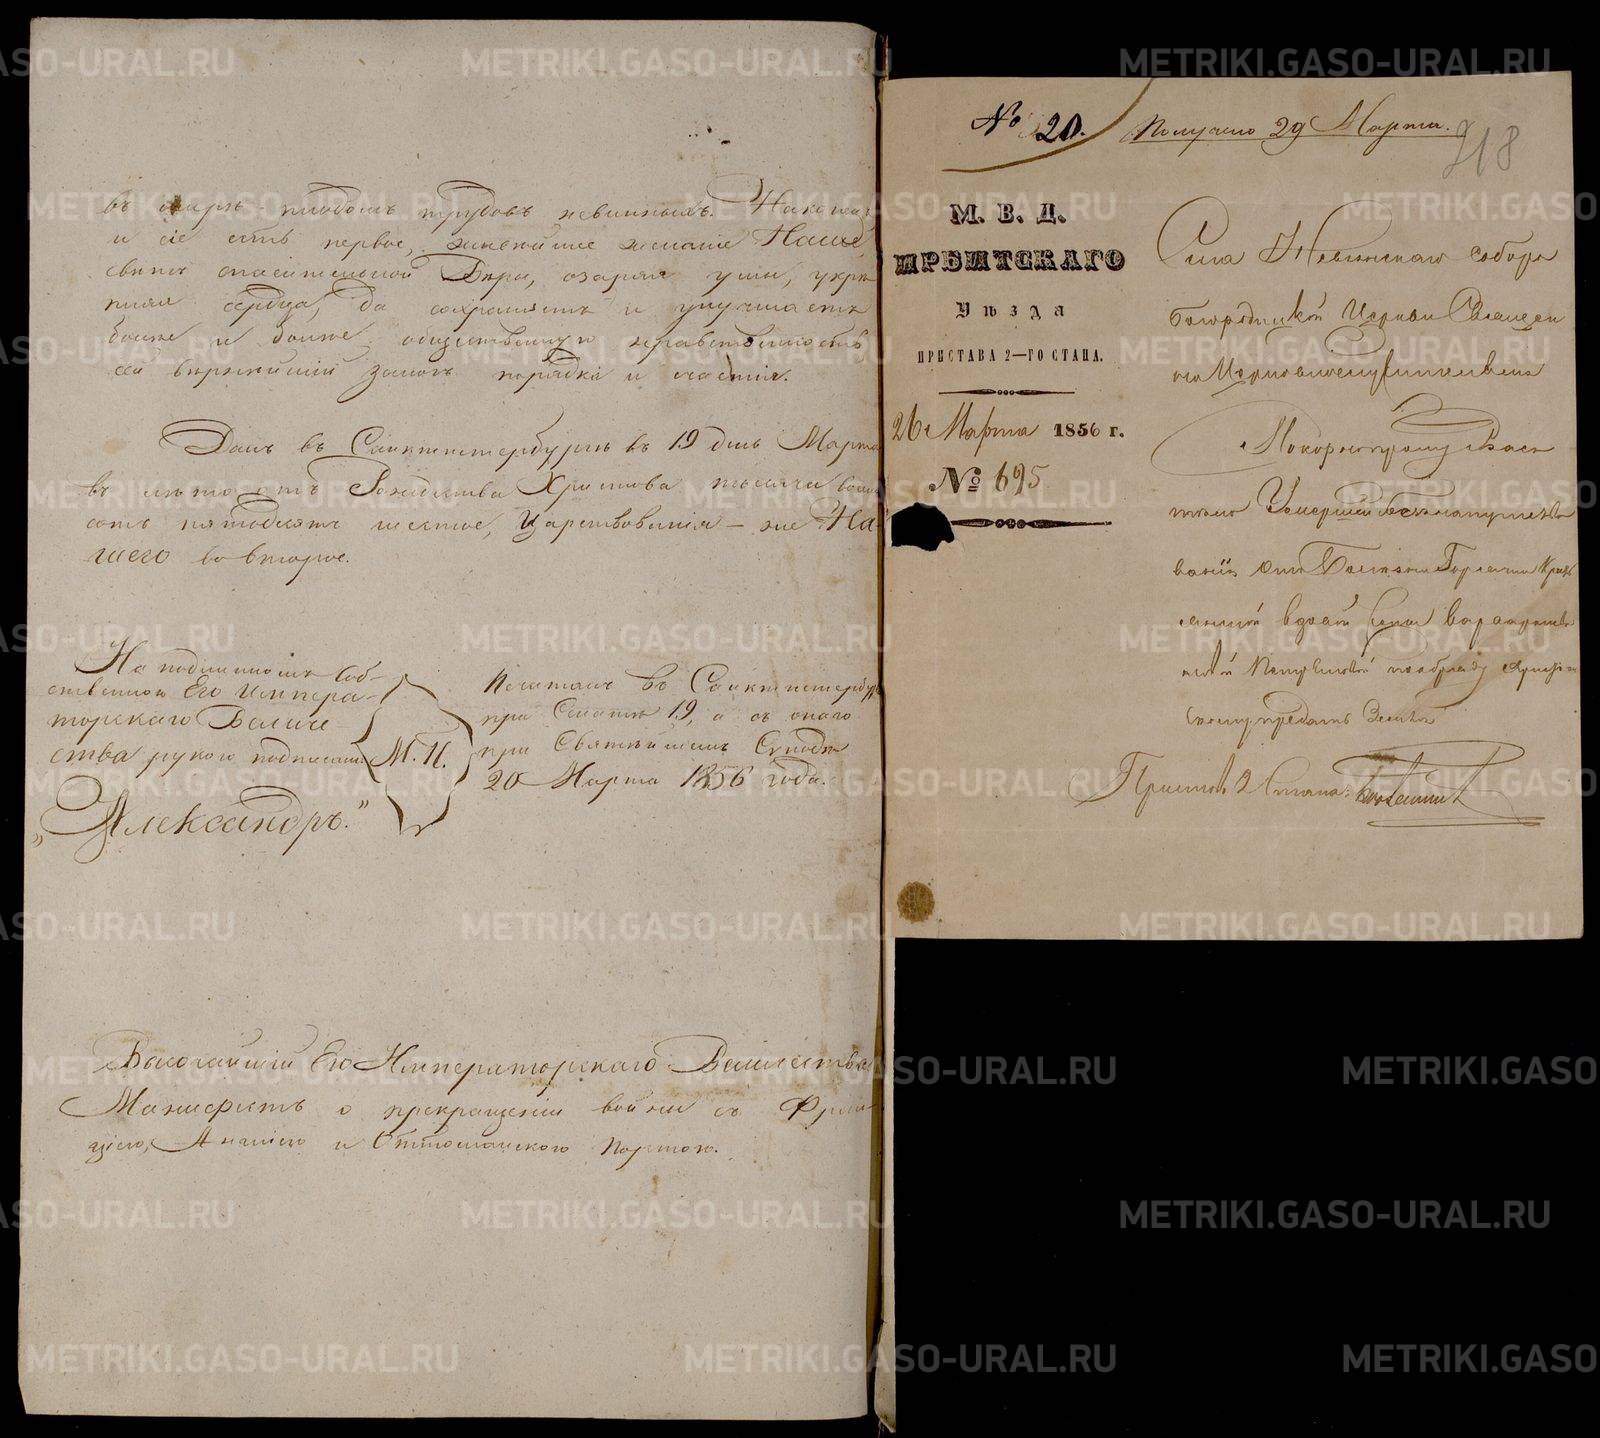 въ мирѣ плодомъ трудовъ невинныхъ. Наконецъ,
и сіе есть первое, живѣйшее желаніе Наше
свѣтъ спасительной Вѣры, озаряя умы, укрѣ
пляя сердца, да сохраняетъ и улучшаетъ
болѣе и болѣе общественную нравственность
сей вѣрнѣйшій залогъ порядка и счастія.
Данъ въ Санктпетербургѣ въ 19 день Марта
въ лѣто отъ Рождества Христова тысяча восемь
сотъ пятьдесятъ шестое, Царствованія - же На-
шего во второе.
На подлинномъ Соб-
ственною Его Импера-
торскаго Величе
ства рукою подписано
„Александръ.“
М. П.
Печатанъ въ Санктпетербургѣ
при Сенатѣ 19, а съ онаго
при Святѣйшемъ Сѵнодѣ
20 Марта 1856 года.
Высочайшій Его Императорскаго Величества
Манифестъ о прекращеніи войны съ Фран-
ціею, Англіею и Оттоманскою Портою.
№ 20. Получено 29 Марта.
218
М. В. Д.
ИРБИТСКАГО
Уѣзда
ПРИСТАВА 2—ГО СТАНА.
26 Марта 1856 г.
№ 695
Села Невьянскаго собора
Богородицкой Церкви Священно
Покорнѣ прошу Васъ
тѣло Умершей
вдовой
предать Землѣ
Приставъ 2 Стана
METRIKI.GASO-URAL.RU